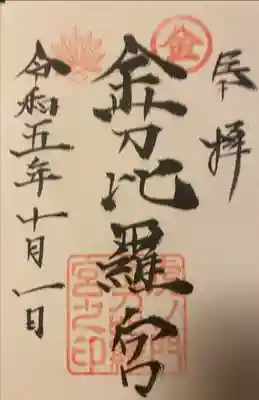 奉拝
金
金刀比羅宮
虎ノ門金刀比羅宮之印
令和五年十月一日